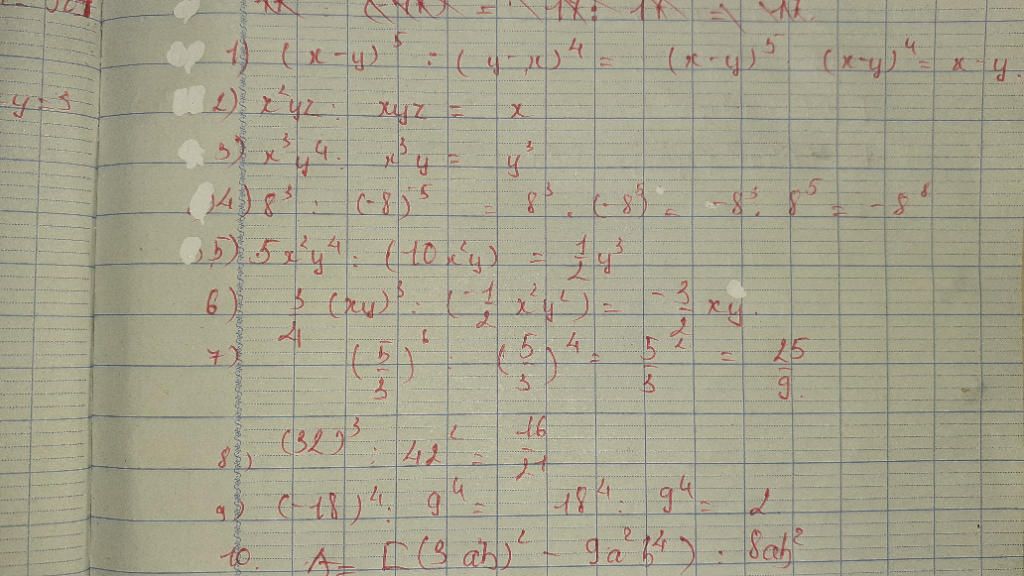 y = 3
1) (x-y)⁵ : (y-x)⁴ = (x-y)⁵ (x-y)⁴ = x-y.
2) x²yz : xyz = x
3) x³y⁴ : x³y = y³
4) 8³ : (-8)⁵ = 8³ . (-8⁵) = -8³ . 8⁵ = -8⁸
5) 5x²y⁴ : (10x²y) = 1/2 y³
6) 3/4 (xy)³ : (-1/2 x²y²) = -3/2 xy.
7) (5/3)⁶ : (5/3)⁴ = 5/3² = 25/9.
8) (32)³ : 42² = 16/21
9) (-18)⁴ : 9⁴ = 18⁴ : 9⁴ = 2
10. A = [(3ab)² - 9a²b⁴) : 8ab²